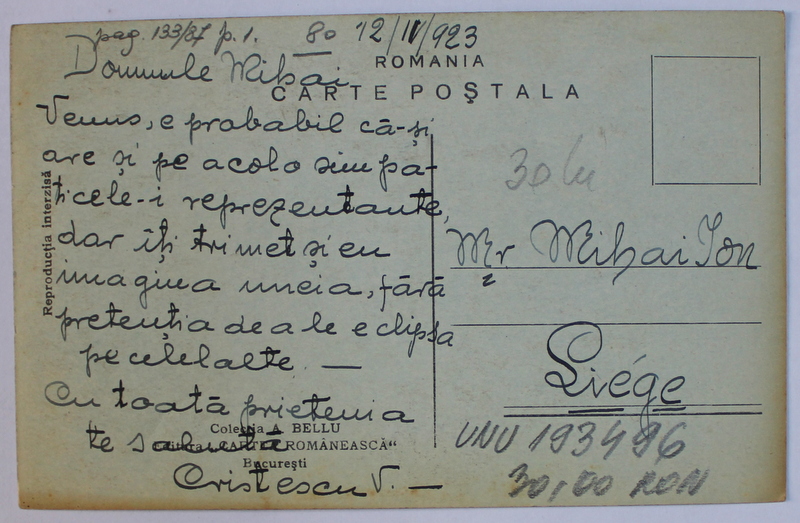 pag. 133/87 p. 1. 80 12/IV/923
ROMANIA
CARTE POŞTALA
Domnule Mihai
Venus, e probabil că-şi
are şi pe acolo simpa-
ticele-i reprezentante,
dar îţi trimet şi eu
imagina uneia, fără
pretenţia de a le eclipsa
pe celelalte. —
Cu toată prietenia
te salută
Cristescu V. —
Reproducţia interzisă
Colecţia A. BELLU
Editura „CARTEA ROMÂNEASCĂ“
Bucureşti
30 lei
Mr Mihai Ion
Liége
UNU 193496
30,00 RON